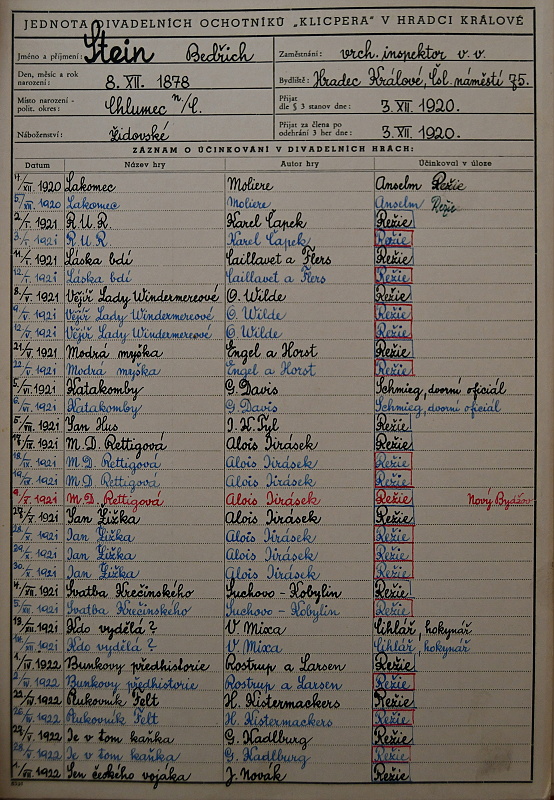 JEDNOTA DIVADELNÍCH OCHOTNÍKŮ „KLICPERA" V HRADCI KRÁLOVÉ
Jméno a příjmení: Stein Bedřich
Zaměstnání: vrch. inspektor v. v.
Den, měsíc a rok narození: 8. XII. 1878
Bydliště: Hradec Králové, Čsl. náměstí 75.
Místo narození - polit. okres: Chlumec n/C.
Přijat dle § 3 stanov dne: 3. XII. 1920.
Náboženství: Židovské
Přijat za člena po odehrání 3 her dne: 3. XII. 1920.
ZÁZNAM O ÚČINKOVÁNÍ V DIVADELNÍCH HRÁCH:
Datum Název hry Autor hry Účinkoval v úloze
4/XII. 1920 Lakomec Moliere Anselm Režie
5/XII. 1920 Lakomec Moliere Anselm Režie
2/I. 1921 R.U.R. Karel Čapek Režie
3/I. 1921 R.U.R. Karel Čapek Režie
1921 Láska bdí Caillavet a Flers Režie
1921 Láska bdí Caillavet a Flers Režie
1921 Vějíř Lady Windermereové O. Wilde Režie
1921 Vějíř Lady Windermereové O. Wilde Režie
1921 Vějíř Lady Windermereové O. Wilde Režie
1921 Modrá myška Engel a Horst Režie
1921 Modrá myška Engel a Horst Režie
5/VI. 1921 Katakomby G. Davis Schmieg, dvorní oficiál
6/VI. 1921 Katakomby G. Davis Schmieg, dvorní oficiál
1921 Jan Hus J. K. Tyl Režie
1921 M. D. Rettigová Alois Jirásek Režie
1921 M. D. Rettigová Alois Jirásek Režie
1921 M. D. Rettigová Alois Jirásek Režie
9/X. 1921 M. D. Rettigová Alois Jirásek Režie Nový Bydžov
1921 Jan Žižka Alois Jirásek Režie
28/X. 1921 Jan Žižka Alois Jirásek Režie
29/X. 1921 Jan Žižka Alois Jirásek Režie
30/X. 1921 Jan Žižka Alois Jirásek Režie
4/XII. 1921 Svatba Krečinského Suchovo - Kobylin Režie
5/XII. 1921 Svatba Krečinského Suchovo - Kobylin Režie
1921 Kdo vydělá? V Mixa Cihlář, hokynář
1921 Kdo vydělá? V Mixa Cihlář, hokynář
1922 Bunkovy předhistorie Rostrup a Larsen Režie
1922 Bunkovy předhistorie Rostrup a Larsen Režie
1922 Plukovník Felt H. Kistermackers Režie
1922 Plukovník Felt H. Kistermackers Režie
1922 Je v tom kaňka G. Kadlburg Režie
1922 Je v tom kaňka G. Kadlburg Režie
1922 Sen českého vojáka J. Novák Režie